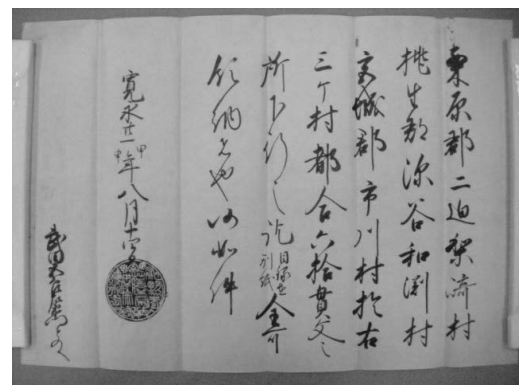 栗原郡二迫梨崎村
桃生郡深谷和渕村
宮城郡市川村於右
三ケ村都合六拾貫文之
所下行之訖目録在別紙全可
領納者也仍如件
寛永廿一甲申年八月十四日
武田五